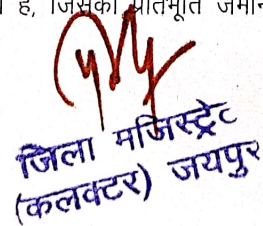 है, जिसकी प्रतिभूति जमान
जिला मजिस्ट्रेट
(कलक्टर) जयपुर